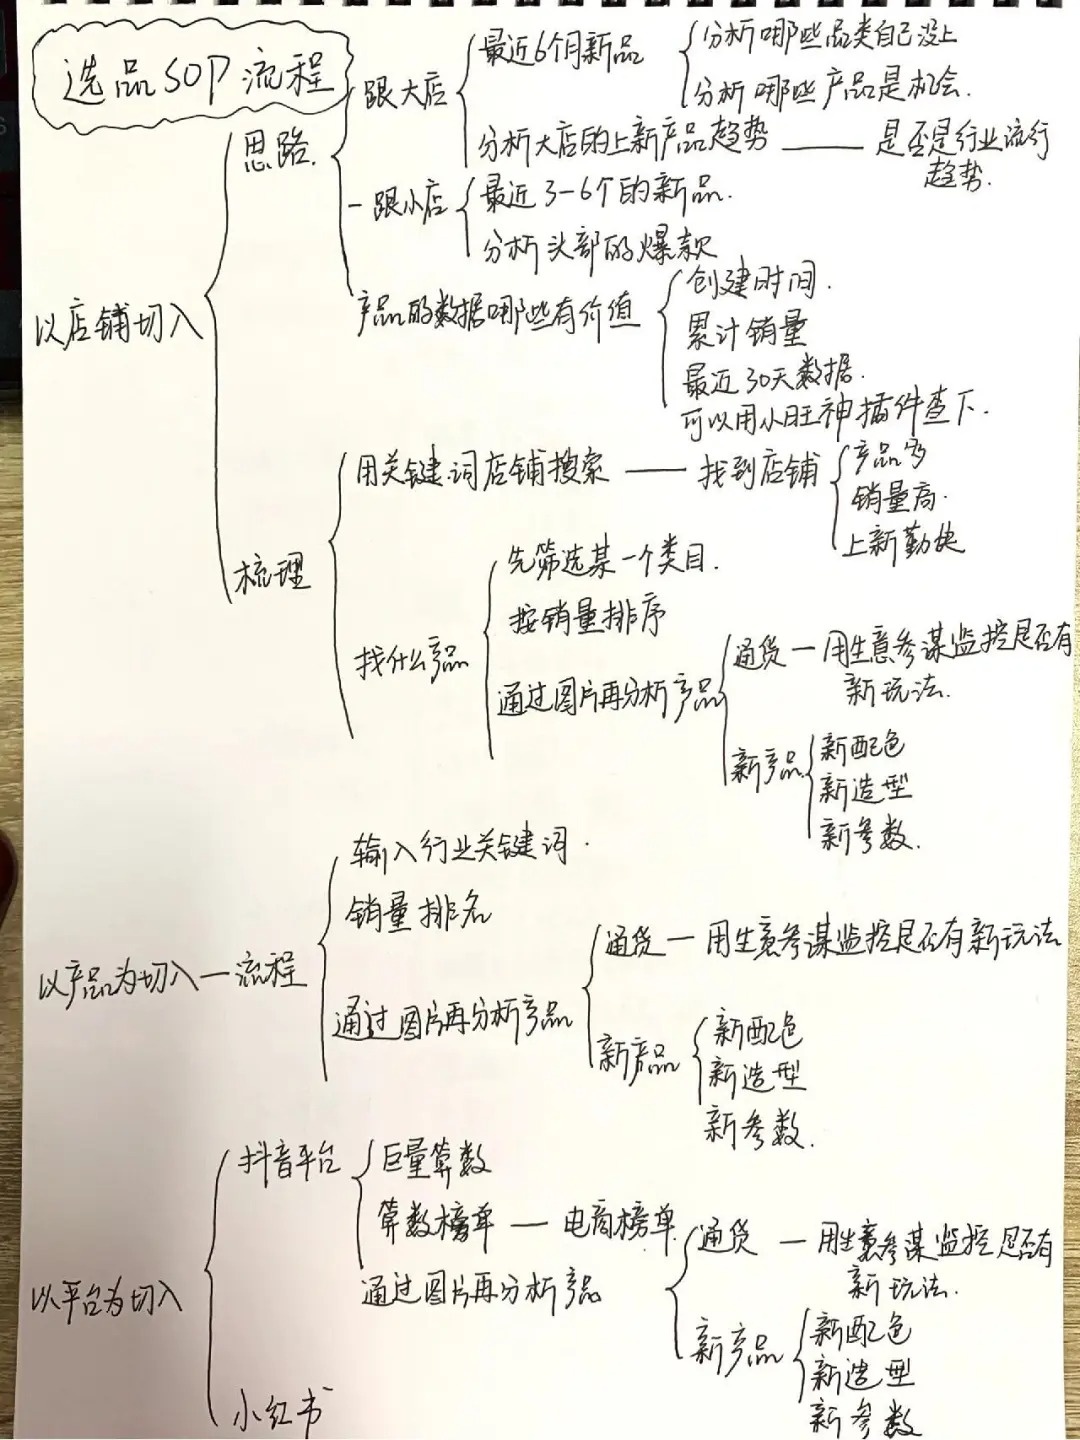 选品SOP流程
以店铺切入
思路.
跟大店
最近6个月新品
分析哪些品类自己没上
分析哪些产品是机会.
分析大店的上新产品趋势 —— 是否是行业流行
趋势.
一跟小店
最近3-6个的新品.
分析头部的爆款
产品的数据哪些有价值
创建时间.
累计销量
最近30天数据.
可以用小旺神插件查下.
梳理
用关键词店铺搜索 —— 找到店铺
产品多
销量高.
上新勤快
找什么产品
先筛选某一个类目.
按销量排序
通过图片再分析产品
通货 — 用生意参谋监控是否有
新玩法.
新产品
新配色
新造型
新参数.
以产品为切入 — 流程
输入行业关键词.
销量排名
通过图片再分析产品
通货 — 用生意参谋监控是否有新玩法
新产品
新配色
新造型
新参数.
以平台为切入
抖音平台
巨量算数
算数榜单 — 电商榜单
通过图片再分析产品
通货 — 用生意参谋监控是否有
新玩法.
新产品
新配色
新造型
新参数
小红书